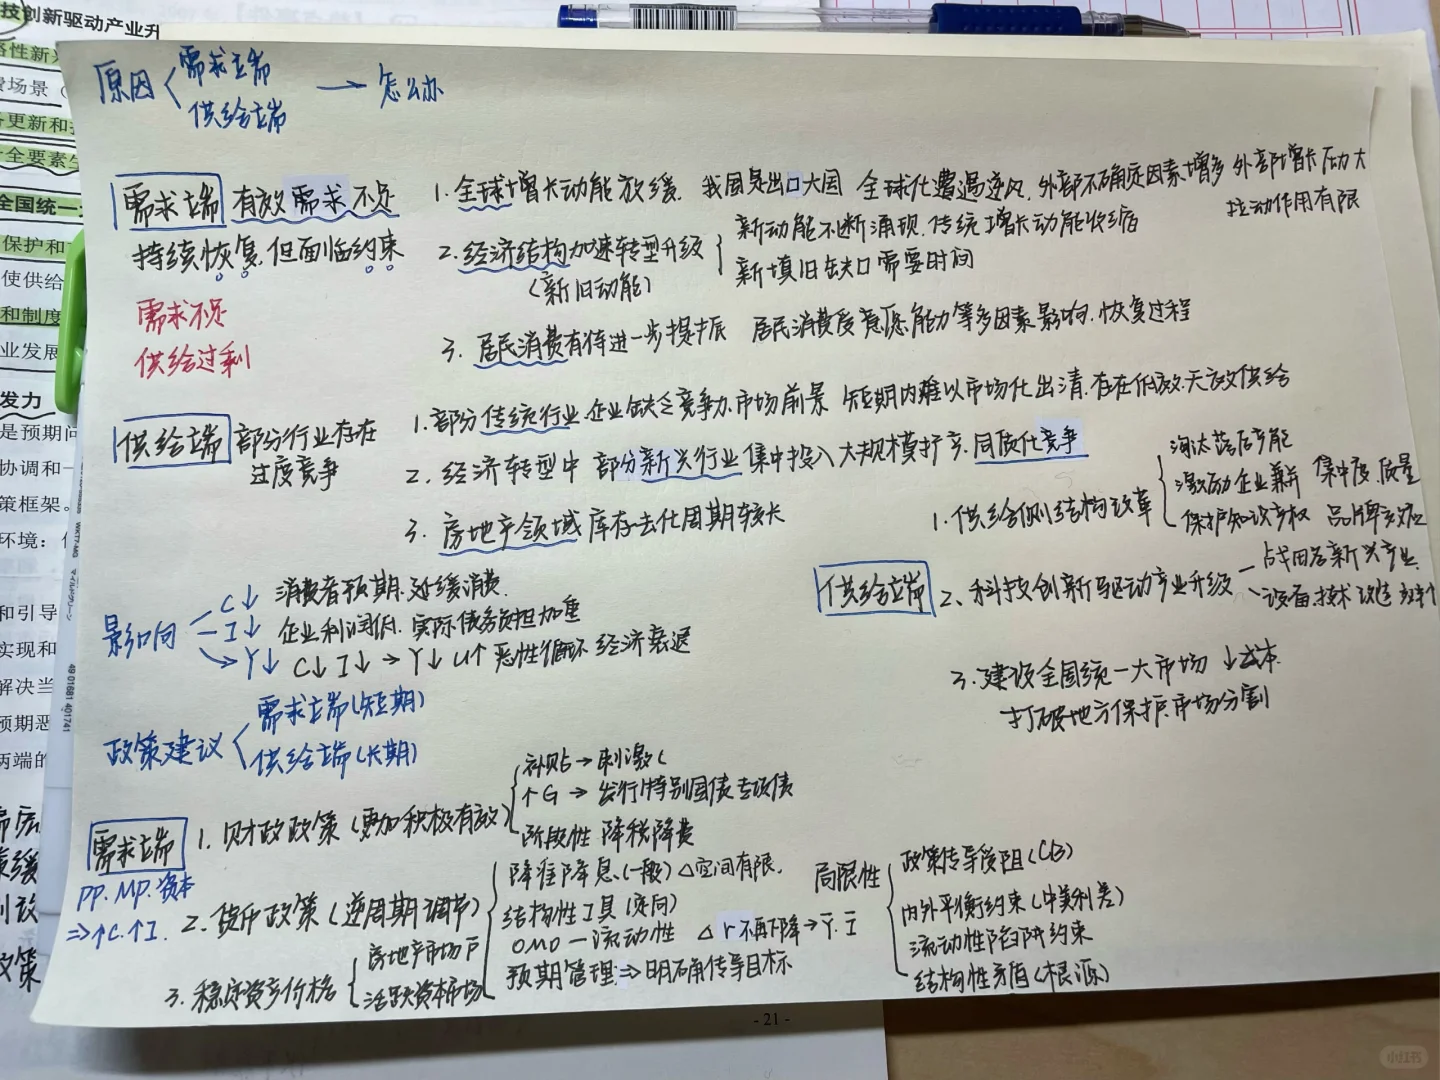 技创新驱动产业升
略性新兴
费场景（
备更新和技
全要素生
全国统一
保护和
使供给
和制度
业发展
发力
是预期问
协调和一
策框架。
环境：
和引导
实现和
解决当
预期恶
两端的
原因
需求端
供给端
→ 怎么办
需求端 有效需求不足
持续恢复,但面临约束
需求不足
供给过剩
1. 全球增长动能放缓. 我国是出口大国 全球化遭遇逆风, 外部不确定因素增多 外部增长压力大
拉动作用有限
2. 经济结构加速转型升级
(新旧动能)
新动能不断涌现,传统增长动能收缩
新填旧缺口需要时间
3. 居民消费有待进一步提振 居民消费受意愿.能力等多因素影响.恢复过程
供给端 部分行业存在
过度竞争
1. 部分传统行业.企业缺乏竞争力.市场前景 短期内难以市场化出清.存在低效.无效供给
2. 经济转型中 部分新兴行业集中投入大规模扩产.同质化竞争
3. 房地产领域 库存去化周期较长
影响
C↓ 消费者预期.延缓消费.
I↓ 企业利润低. 实际债务负担加重
Y↓ C↓ I↓ → Y↓ U↑ 恶性循环 经济衰退
政策建议
需求端(短期)
供给端(长期)
供给端
1. 供给侧结构改革
淘汰落后产能
激励企业兼并 集中度.质量
保护知识产权 品牌效应
2、科技创新驱动产业升级
战略新兴产业
设备.技术改造
3. 建设全国统一大市场 ↓成本.
打破地方保护.市场分割
需求端
PP. MP. 资本
⇒↑C.↑I.
1. 财政政策 (更加积极有效)
补贴→刺激C
↑G → 发行特别国债 专项债
阶段性 降税降费
2. 货币政策 (逆周期调节)
降准降息(一般) △空间有限.
结构性工具(定向)
OMO — 流动性 △ r不再下降→Y.I
预期管理⇒明确传导目标
3. 稳定资产价格
房地产市场
活跃资本市场
局限性
政策传导受阻(CB)
内外平衡约束(中美利差)
流动性陷阱约束
结构性矛盾(根源)
- 21 -
49 01681 401741
小红书